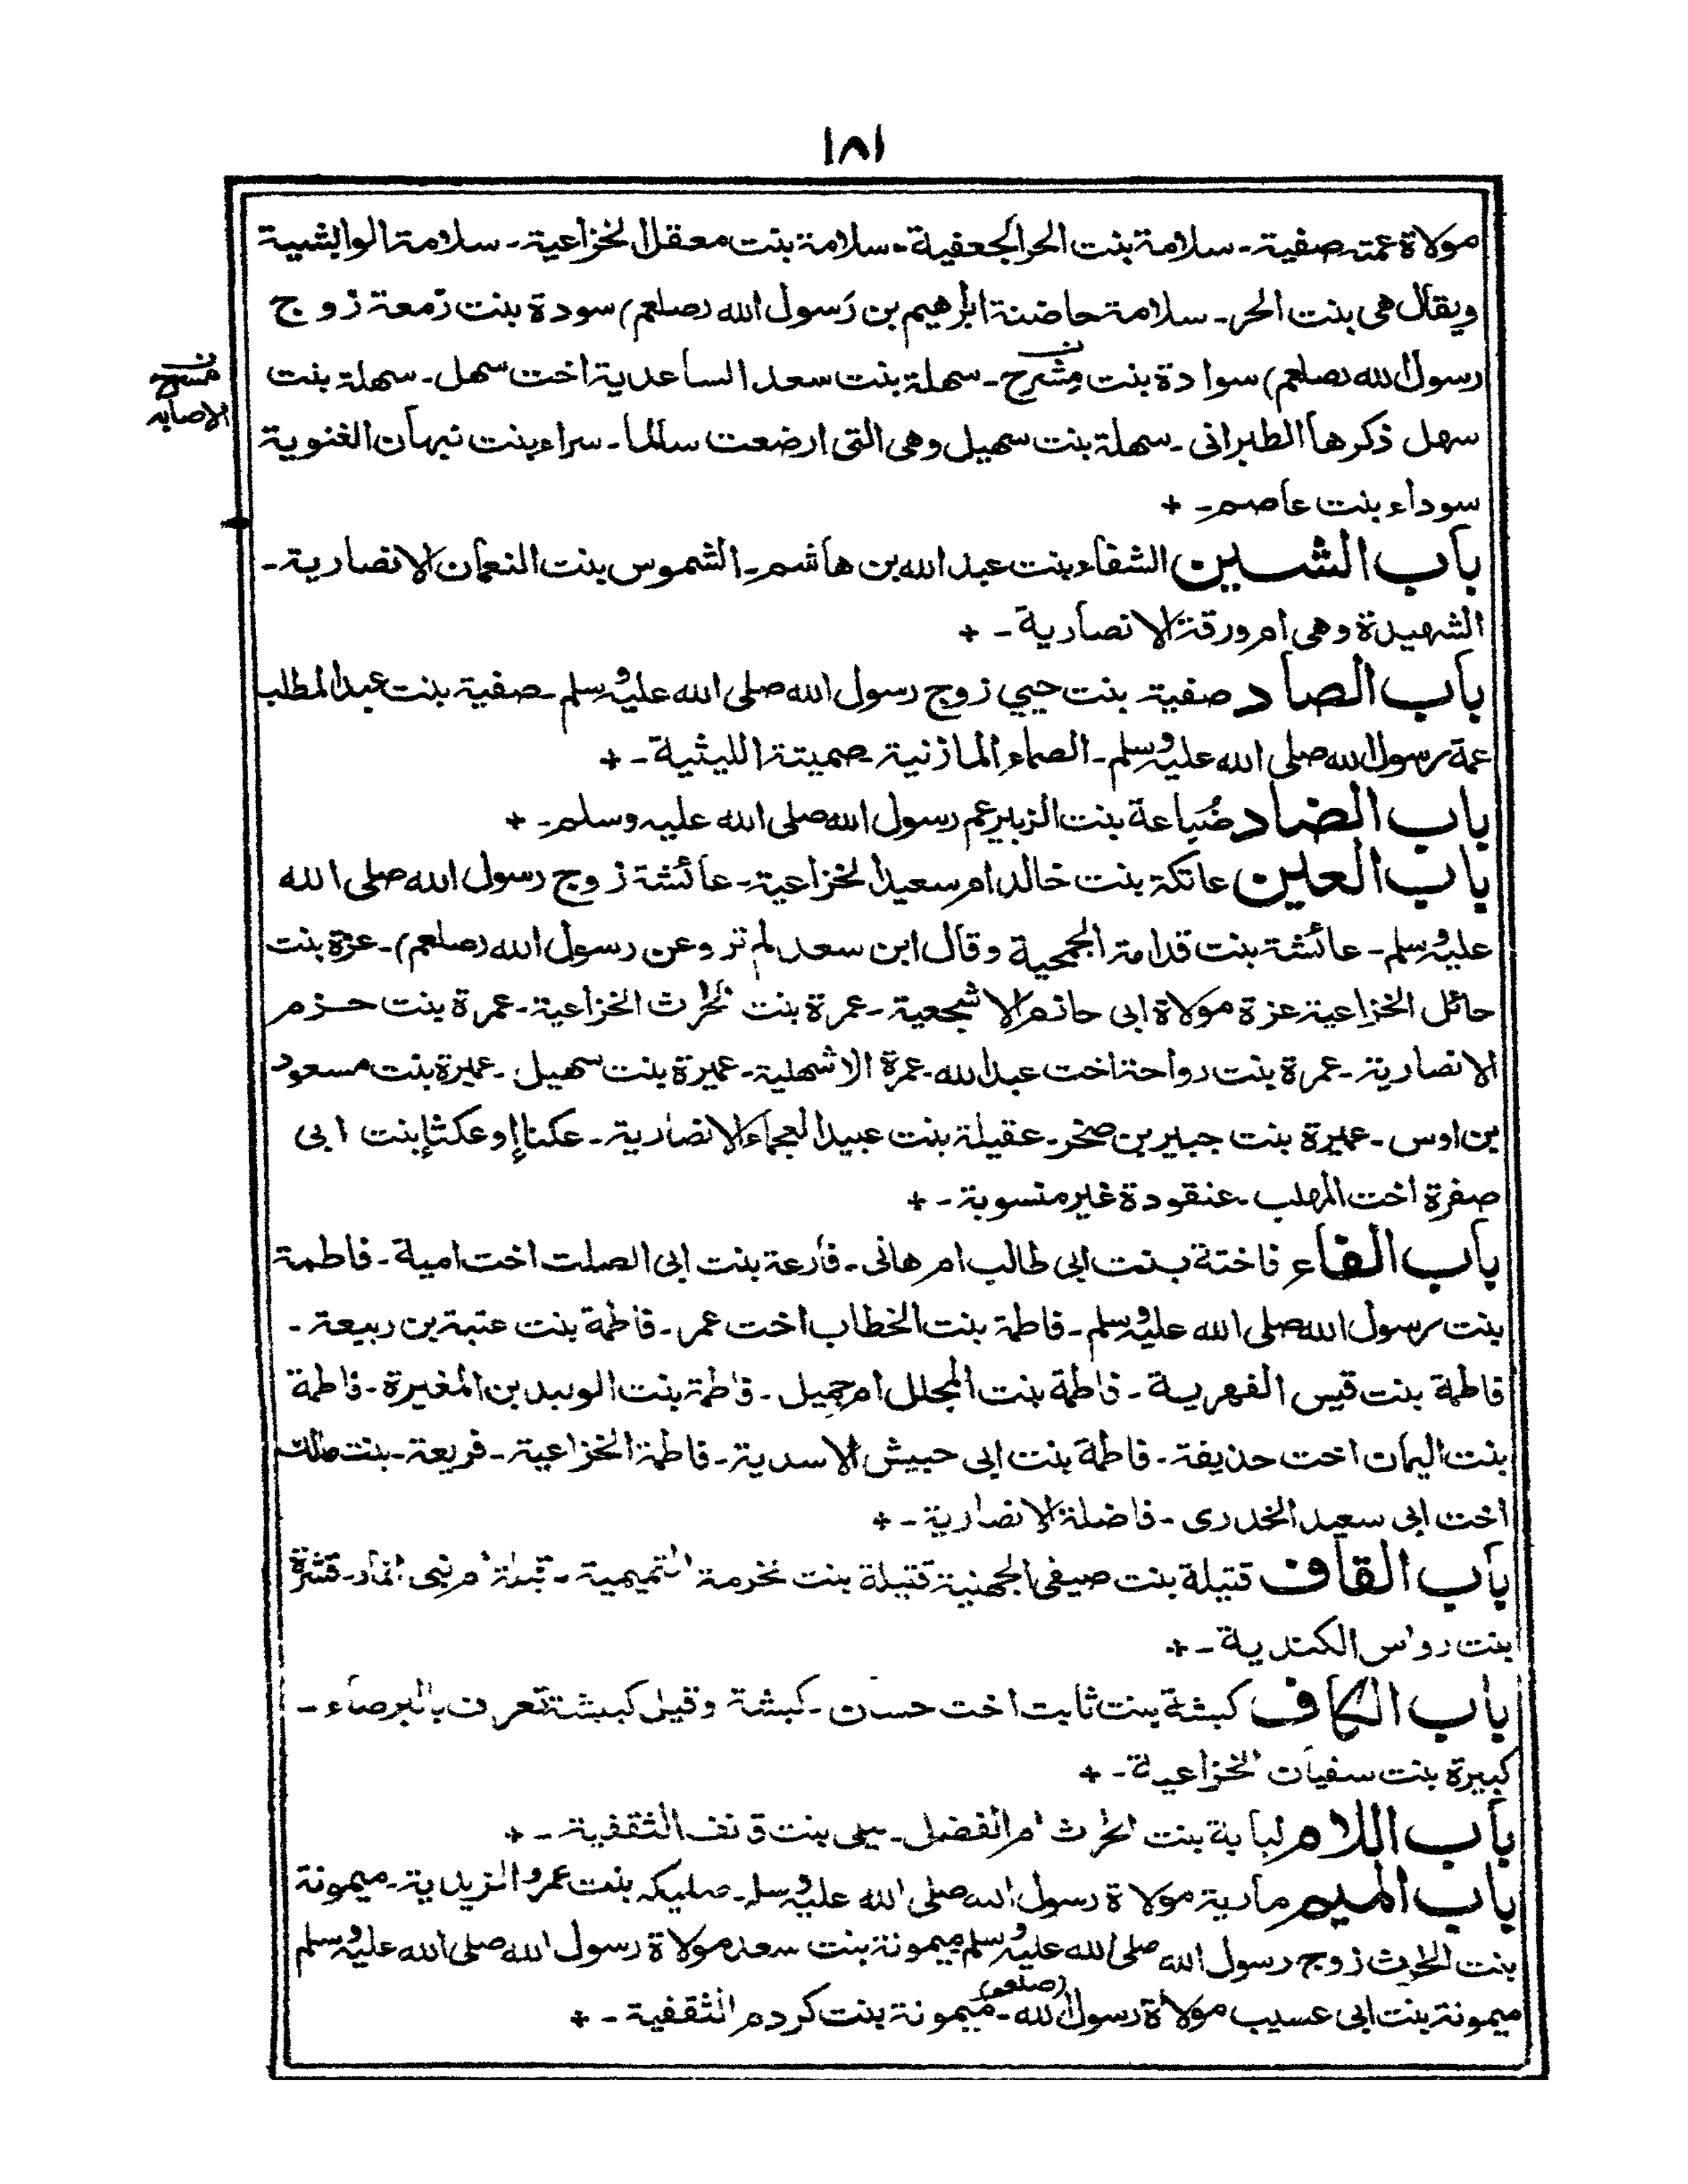 ١٨١
مولاة عمته صفية۔ سلامة بنت الحر الجعفية۔ سلامة بنت معقل الخزاعية۔ سلامة الوابشية
ويقال هى بنت الحر۔ سلامة حاضنة ابرهيم بن رسول الله (صلعم) سودة بنت زمعة زوج
رسول الله (صلعم) سوادة بنت مشرح۔ سهلة بنت سعد الساعدية اخت سهل۔ سهلة بنت
ن مسرح
الاصابه
سهل ذكرها الطبرانى۔ سهلة بنت سهيل وهى التى ارضعت سالما۔ سراء بنت نبهان الغنوية
سوداء بنت عاصم۔ +
باب الشين الشفاء بنت عبد الله بن هاشم۔ الشموس بنت النعمان الانصارية۔
الشهيدة وهى ام ورقة الانصارية۔ +
باب الصاد صفية بنت حيي زوج رسول الله صلى الله عليه وسلم۔ صفية بنت عبد المطلب
عمة رسول الله صلى الله عليه وسلم۔ الصماء المازنية۔ صميتة الليثية۔ +
باب الضاد ضُبَاعة بنت الزبير عم رسول الله صلى الله عليه وسلم۔ +
باب العين عاتكة بنت خالد ام سعيد الخزاعية۔ عائشة زوج رسول الله صلى الله
عليه وسلم۔ عائشة بنت قدامة الجمحية وقال ابن سعد لم تر وعن رسول الله (صلعم)۔ عزة بنت
حائل الخزاعية عزة مولاة ابى حازم الاشجعية۔ عمرة بنت الحرث الخزاعية۔ عمرة بنت حزم
الانصارية۔ عمرة بنت رواحة اخت عبد الله۔ عمرة الاشهلية۔ عميرة بنت سهيل۔ عميرة بنت مسعود
بن اوس۔ عميرة بنت جبير بن صخر۔ عقيلة بنت عبيد العجماء الانصارية۔ عكنا او عكثا بنت ابى
صفرة اخت المهلب۔ عنقودة غير منسوبة۔ +
باب الفاء فاختة بنت ابى طالب ام هانى۔ فارعة بنت ابى الصلت اخت امية۔ فاطمة
بنت رسول الله صلى الله عليه وسلم۔ فاطمة بنت الخطاب اخت عمر۔ فاطمة بنت عتبة بن ربيعة۔
فاطمة بنت قيس الفهرية۔ فاطمة بنت المجلل ام جميل۔ فاطمة بنت الوليد بن المغيرة۔ فاطمة
بنت اليمان اخت حذيفة۔ فاطمة بنت ابى حبيش الاسدية۔ فاطمة الخزاعية۔ فريعة۔ بنت مالك
اخت ابى سعيد الخدرى۔ فاضلة الانصارية۔ +
باب القاف قتيلة بنت صيفى الجهنية قتيلة بنت مخرمة التميمية۔ قيلة ام بنى انمار۔ قشرة
بنت رواس الكندية۔ +
باب الكاف كبشة بنت ثابت اخت حسان۔ كبشة وقيل كبيشة تعرف بالبرصاء۔
كبيرة بنت سفيان الخزاعية۔ +
باب اللام لبابة بنت الحرث ام الفضل۔ ليلى بنت قانف الثقفية۔ +
باب الميم مارية مولاة رسول الله صلى الله عليه وسلم۔ مليكه بنت عمرو الزيدية۔ ميمونة
بنت الحرث زوج رسول الله صلى الله عليه وسلم ميمونة بنت سعد مولاة رسول الله صلى الله عليه وسلم
ميمونة بنت ابى عسيب مولاة رسول الله (صلعم)۔ ميمونة بنت كردم الثقفية۔ +